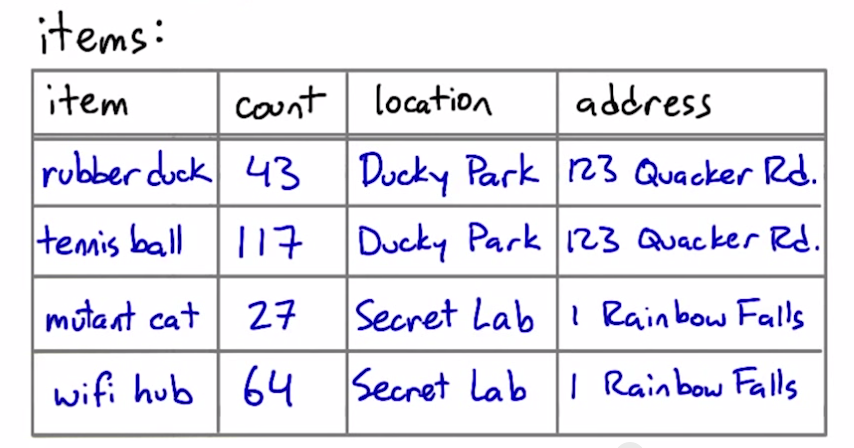 items:
item count location address
rubber duck 43 Ducky Park 123 Quacker Rd.
tennis ball 117 Ducky Park 123 Quacker Rd.
mutant cat 27 Secret Lab 1 Rainbow Falls
wifi hub 64 Secret Lab 1 Rainbow Falls